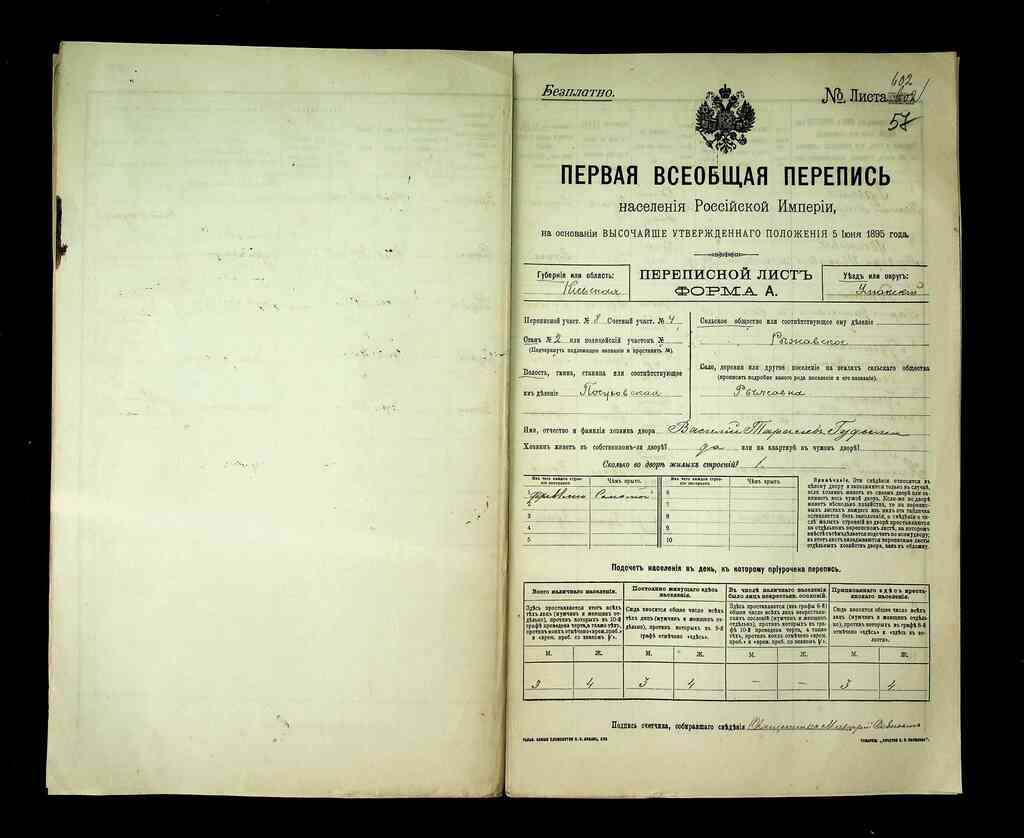 Безплатно.
№ Листа 602
57
ПЕРВАЯ ВСЕОБЩАЯ ПЕРЕПИСЬ
населенія Россійской Имперіи,
на основаніи ВЫСОЧАЙШЕ УТВЕРЖДЕННАГО ПОЛОЖЕНІЯ 5 Іюня 1895 года.
Губернія или область:
Кіевская
ПЕРЕПИСНОЙ ЛИСТЪ
ФОРМА А.
Уѣздъ или округъ:
Уманскій
Переписной участ. № 8 Счетный участ. № 4
Станъ № 2 или полицейскій участокъ №
(Подчеркнуть подлежащее названіе и проставить №).
Волость, гмина, станица или соотвѣтствующее
имъ дѣленіе
Сельское общество или соотвѣтствующее ему дѣленіе
Село, деревня или другое поселеніе на земляхъ сельскаго общества
(прописать подробно какого рода поселеніе и его названіе).
Имя, отчество и фамилія хозяина двора Василій
Хозяинъ живетъ въ собственномъ-ли дворѣ? да или на квартирѣ въ чужомъ дворѣ?
Сколько во дворѣ жилыхъ строеній? 1.
Изъ чего каждое строеніе построено
Чѣмъ крыто.
Изъ чего каждое строеніе построено
Чѣмъ крыто.
6
7
3 8
4 9
5 10
Примѣчаніе. Эти свѣдѣнія относятся къ
цѣлому двору и заполняются только въ случаѣ,
если хозяинъ живетъ въ своемъ дворѣ или за-
нимаетъ весь чужой дворъ. Если-же во дворѣ
имѣетъ нѣсколько хозяйствъ, то на перепис-
ныхъ листахъ каждаго изъ нихъ эта табличка
оставляется безъ заполненія, а свѣдѣнія о чи-
слѣ жилыхъ строеній во дворѣ проставляются
на отдѣльномъ переписномъ листѣ, на которомъ
вмѣстѣ съ тѣмъ дѣлается подсчетъ по всему двору;
въ этотъ листъ вкладываются переписные листы
отдѣльныхъ хозяйствъ двора, какъ въ обложку.
Подсчетъ населенія въ день, къ которому пріурочена перепись.
Всего наличнаго населенія.
Постоянно живущаго здѣсь населенія.
Въ числѣ наличнаго населенія было лицъ некрестьян. сословій.
Приписаннаго здѣсь крестьянскаго населенія.
Здѣсь проставляется итогъ всѣхъ
тѣхъ лицъ (мужчинъ и женщинъ от-
дѣльно), противъ которыхъ въ 10-й
графѣ проведена черта, а также тѣхъ,
противъ коихъ отмѣчено «врем. преб.»
и «врем. преб. со знакомъ
Сюда вносится общее число всѣхъ
тѣхъ лицъ (мужчинъ и женщинъ от-
дѣльно), противъ которыхъ въ 9-й
графѣ отмѣчено «здѣсь».
Сюда вносится общее число всѣхъ
лицъ (мужчинъ и женщинъ отдѣль-
но), противъ которыхъ въ графѣ 8-й
отмѣчено «здѣсь» и «здѣсь въ во-
лости».
М. Ж. М. Ж. М. Ж. М. Ж.
3 4 3 4 — — 3 4
Подпись счетчика, собиравшаго свѣдѣнія